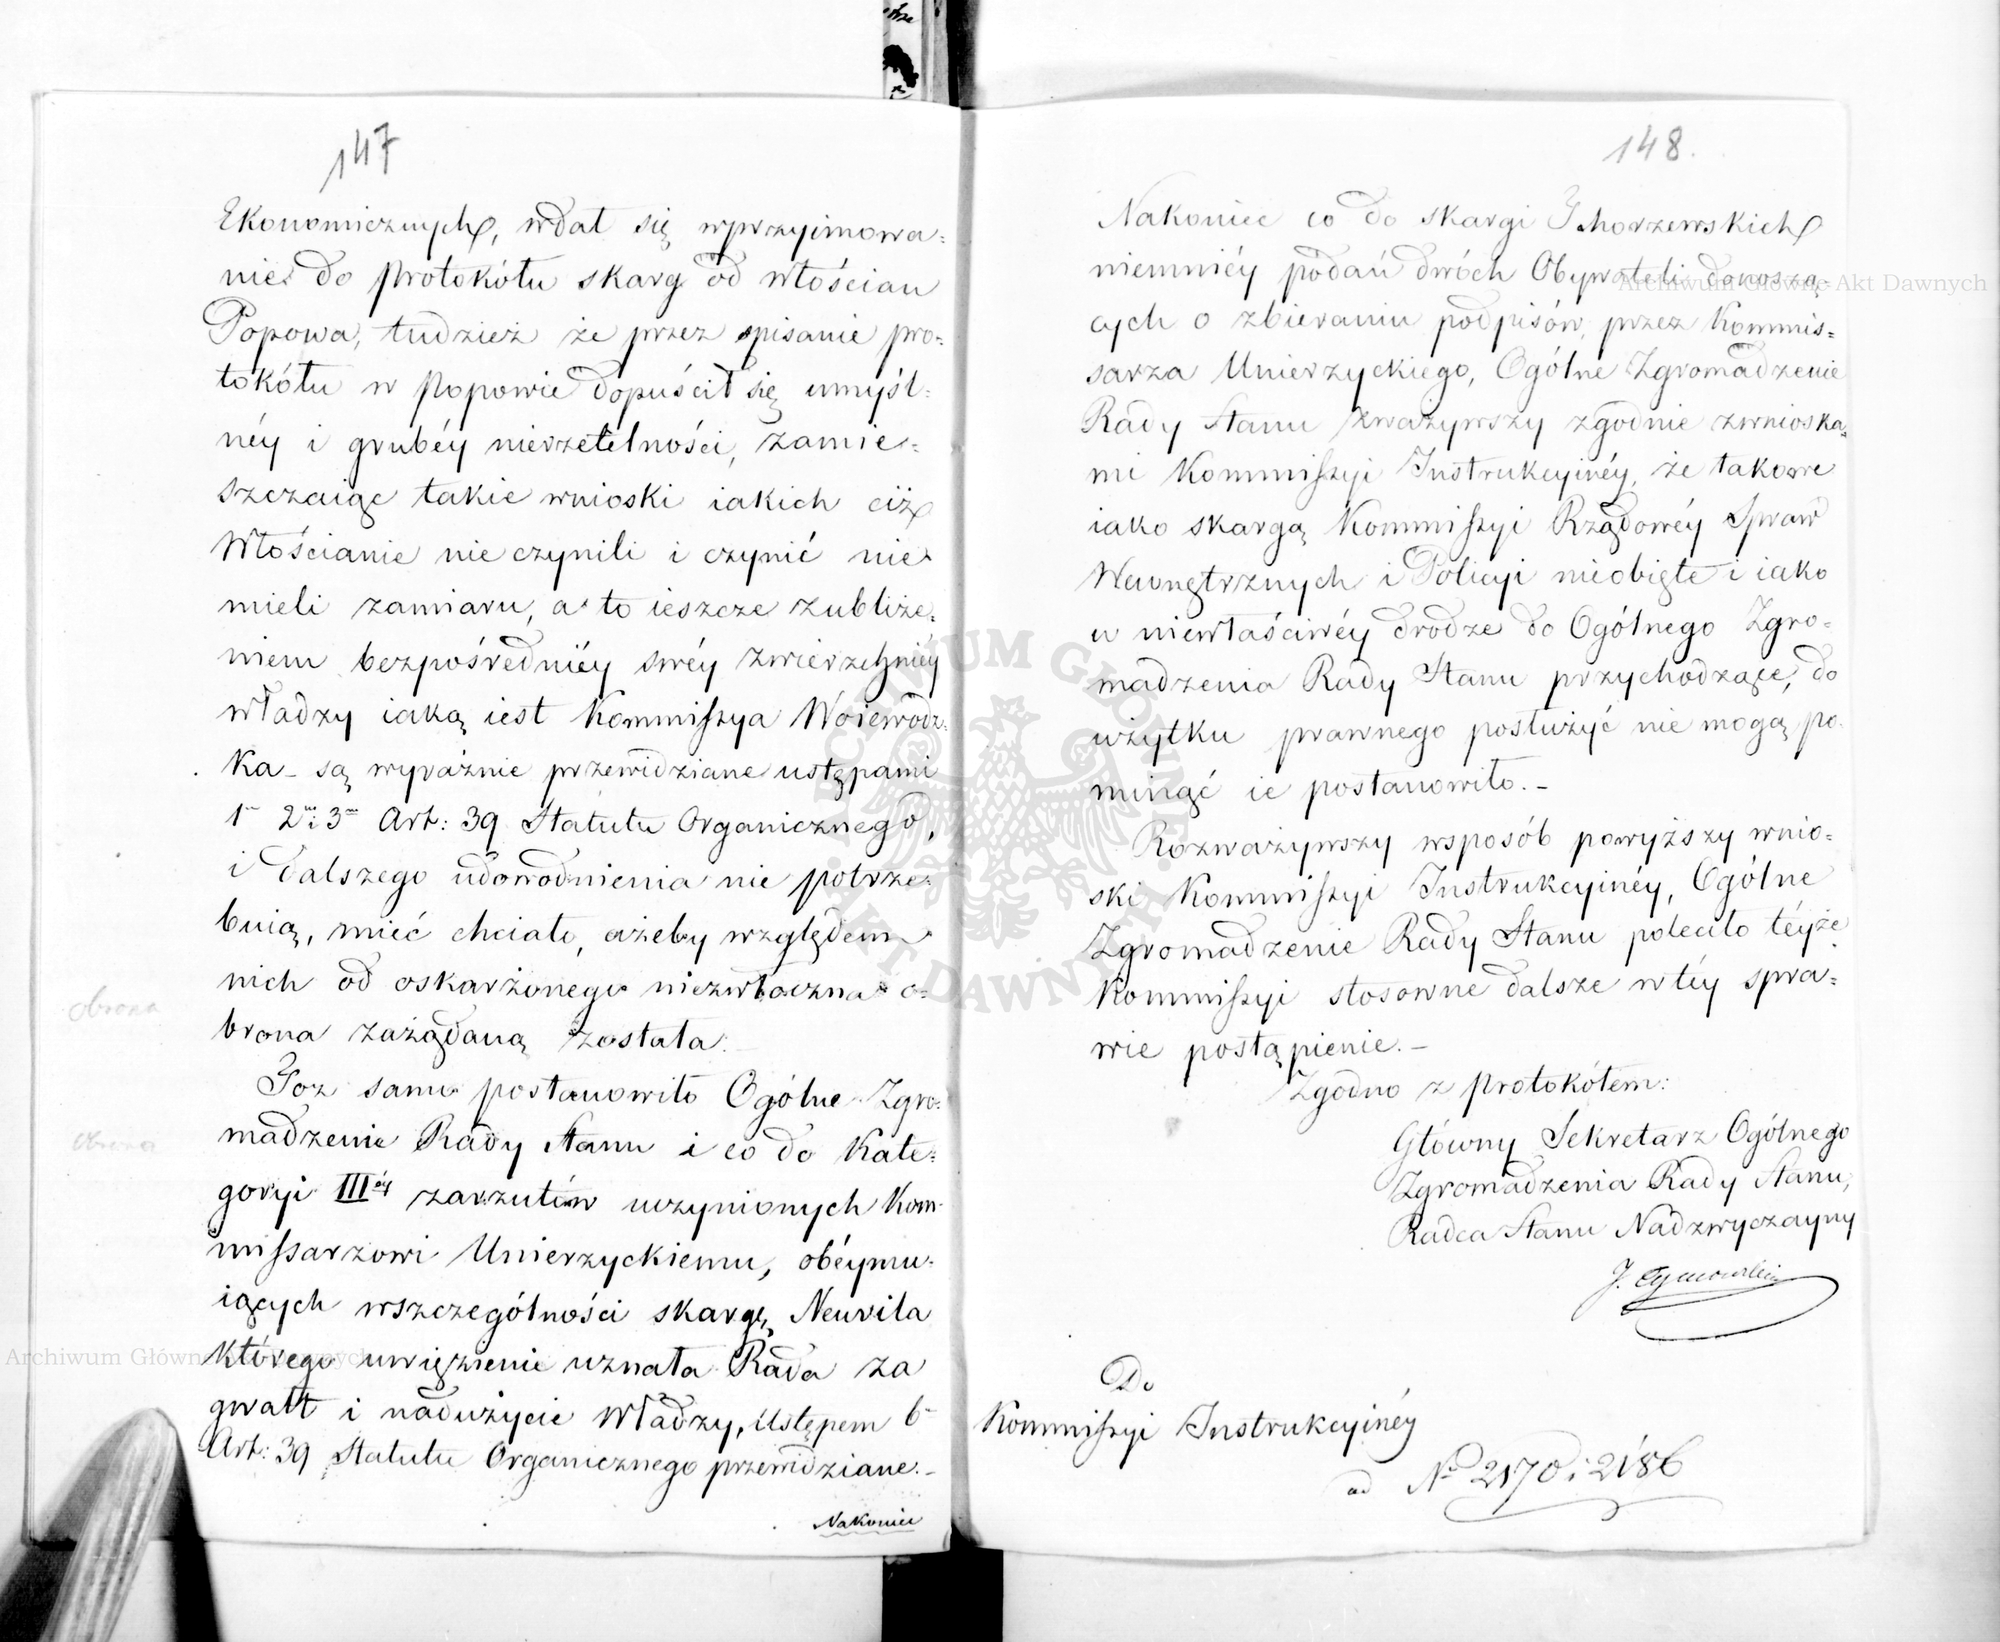 147
Ekonomicznych, wdał się wprzyimowa=
nie do protokółu skarg od włościan
Popowa, tudzież że przez spisanie pro=
tokółu w Popowie dopuścił się umyśl=
néy i grubéy nierzetelności, zamie=
szczaiąc takie wnioski iakich ciż
Włościanie nie czynili i czynić nie
mieli zamiaru, a to ieszcze zubliże=
niem bezpośredniéy swéy zwierzchniéy
władzy iaką iest Kommissya Woiewodz=
ka – są wyraźnie przewidziane ustępami
1m 2m i 3m Art: 39 Statutu Organicznego,
i dalszego udowodnienia nie potrze=
buią, mieć chciało, ażeby względem
nich od oskarżonego niezwłoczna o=
brona zażądaną została. –
Toż samo postanowiło Ogólne Zgro=
madzenie Rady Stanu i co do Kate=
goryi IIIéy zarzutów uczynionych Kom=
missarzowi Unierzyckiemu, obéymu=
iących wszczególności skargę Neuvila
którego uwięzienie uznała Rada za
gwałt i nadużycie Władzy, ustępem 6m
Art: 39 Statutu Organicznego przewidziane. –
Nakoniec
obrona
obrona
148.
Nakoniec co do skargi Tchorzewskich
niemniéy podań dwóch Obywateli donoszą=
cych o zbieraniu podpisów przez Kommis=
sarza Unierzyckiego, Ogólne Zgromadzenie
Rady Stanu zważywszy zgodnie zwnioska=
mi Kommissyi Instrukcyinéy, że takowe
iako skargą Kommissyi Rządowéy Spraw
Wewnętrznych i Policyi nieobięte i iako
w niewłaściwéy drodze do Ogólnego Zgro=
madzenia Rady Stanu przychodzące, do
użytku prawnego posłużyć nie mogą po=
minąć ie postanowiło. –
Rozważywszy wsposób powyższy wnio=
ski Kommissyi Instrukcyinéy, Ogólne
Zgromadzenie Rady Stanu poleciło téyże
Kommissyi stosowne dalsze w téy spra=
wie postąpienie. –
Zgodno z protokółem:
Główny Sekretarz Ogólnego
Zgromadzenia Rady Stanu,
Radca Stanu Nadzwyczayny
Do
Kommissyi Instrukcyinéy
ad No 2170 i 2186
Archiwum Główne Akt Dawnych
Archiwum Główne Akt Dawnych
ARCHIWUM GŁÓWNE AKT DAWNYCH